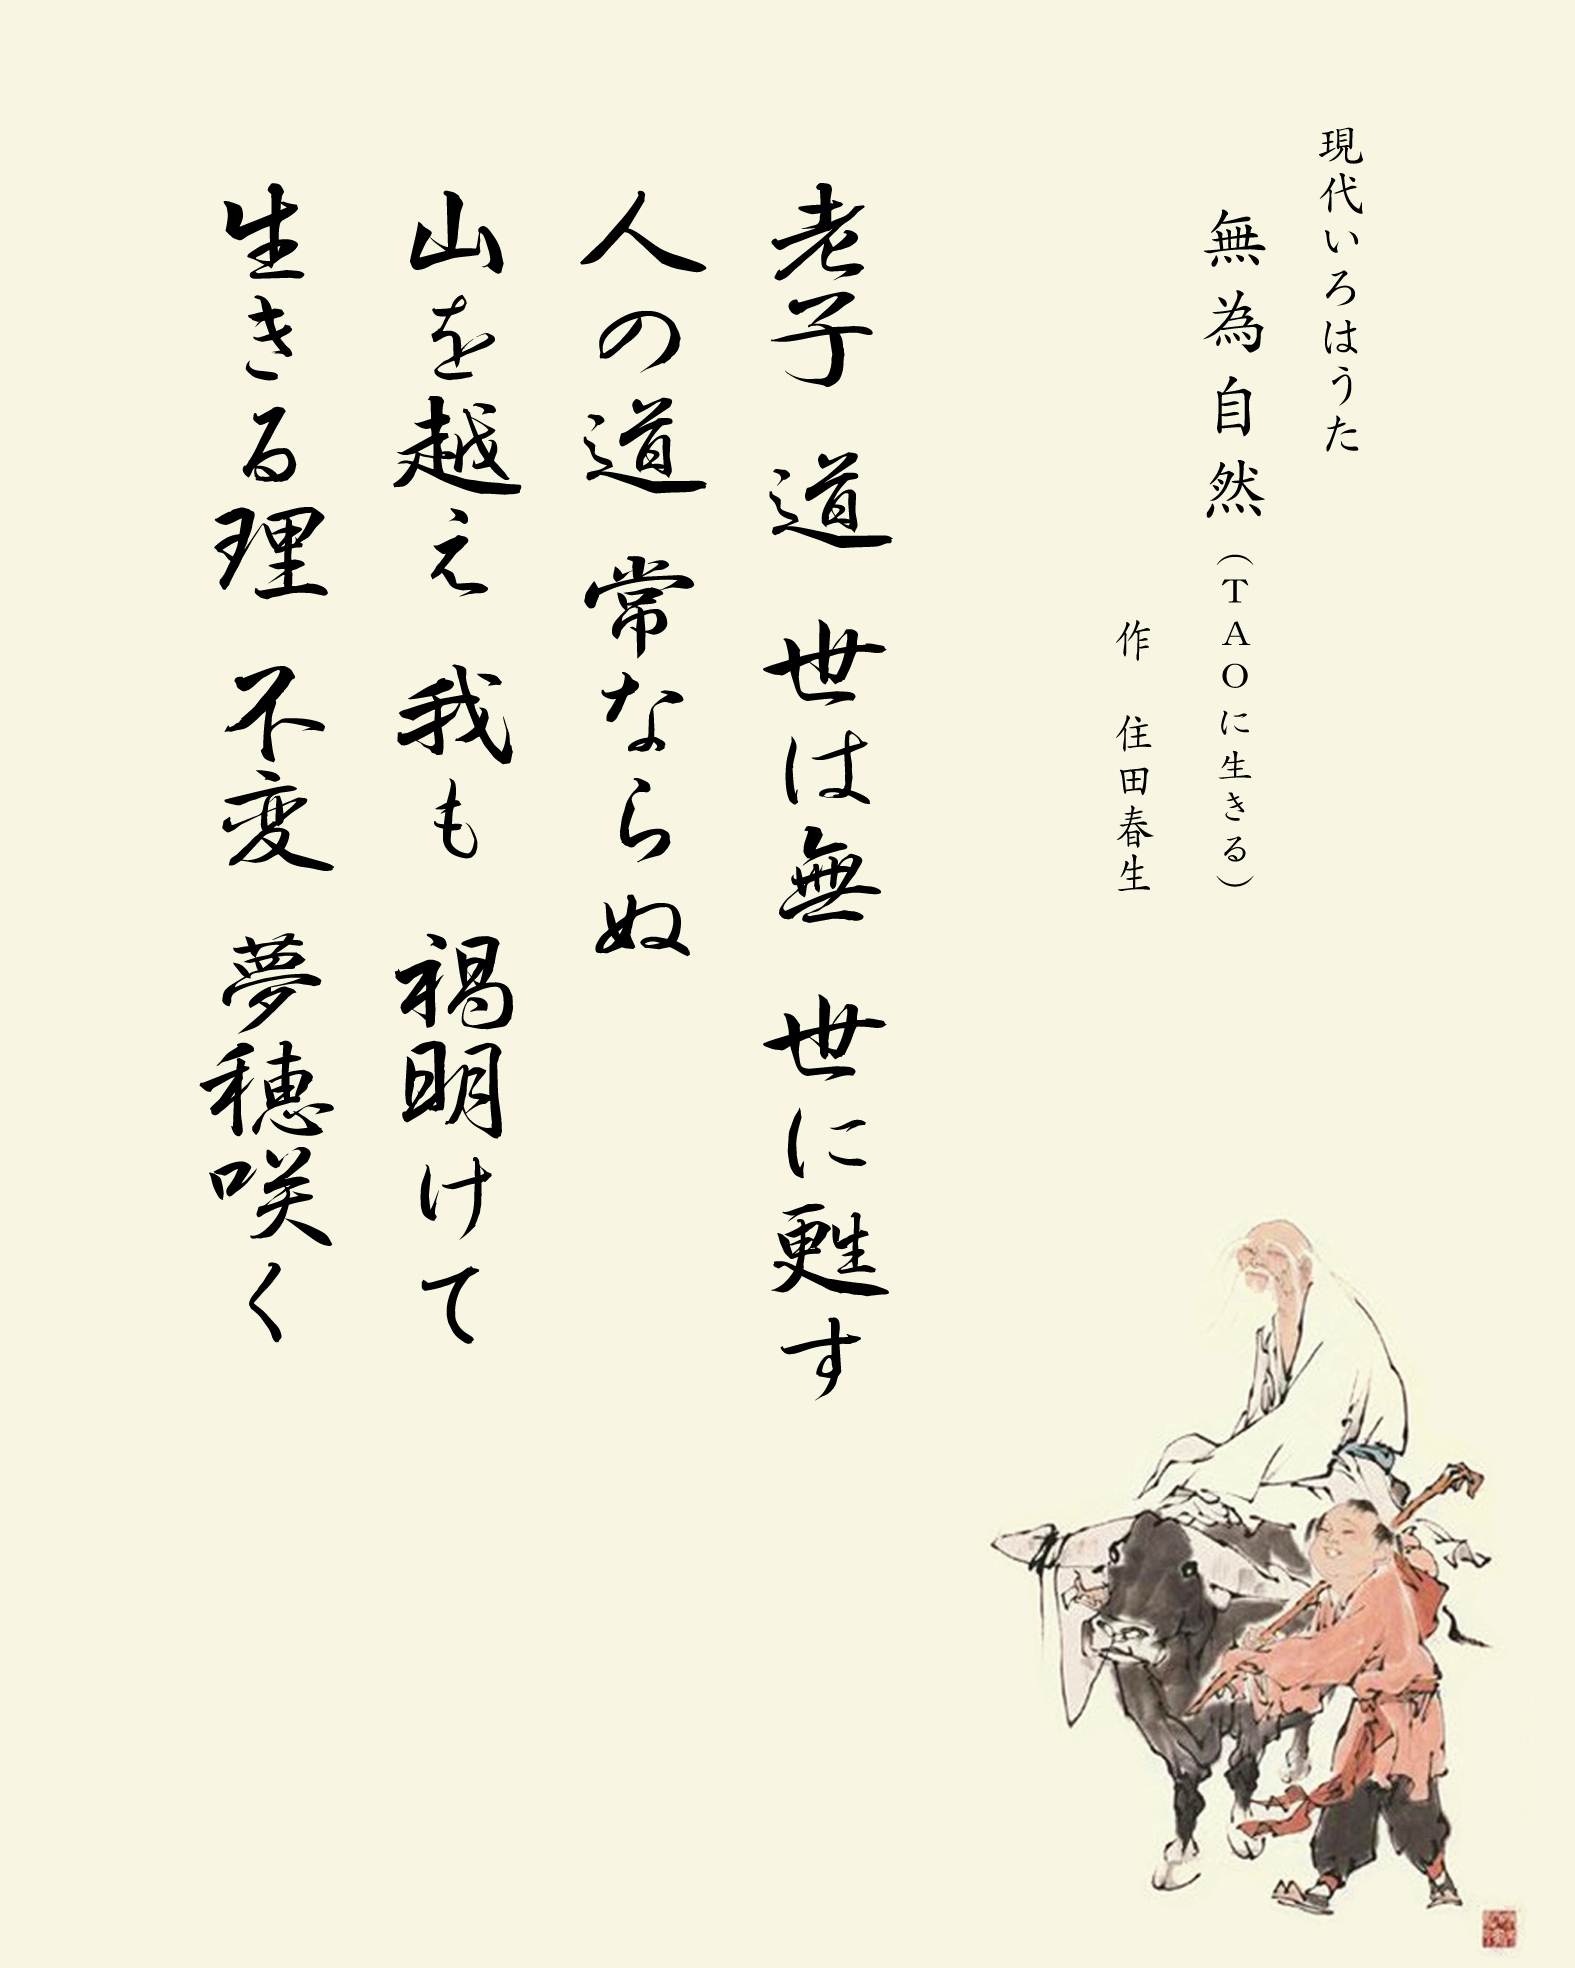 現代いろはうた
無為自然（TAOに生きる）
作　住田春生
老子　道　世は無　世に甦す
人の道　常ならぬ
山を越え　我も　褐明けて
生きる理　不変　夢穂咲く